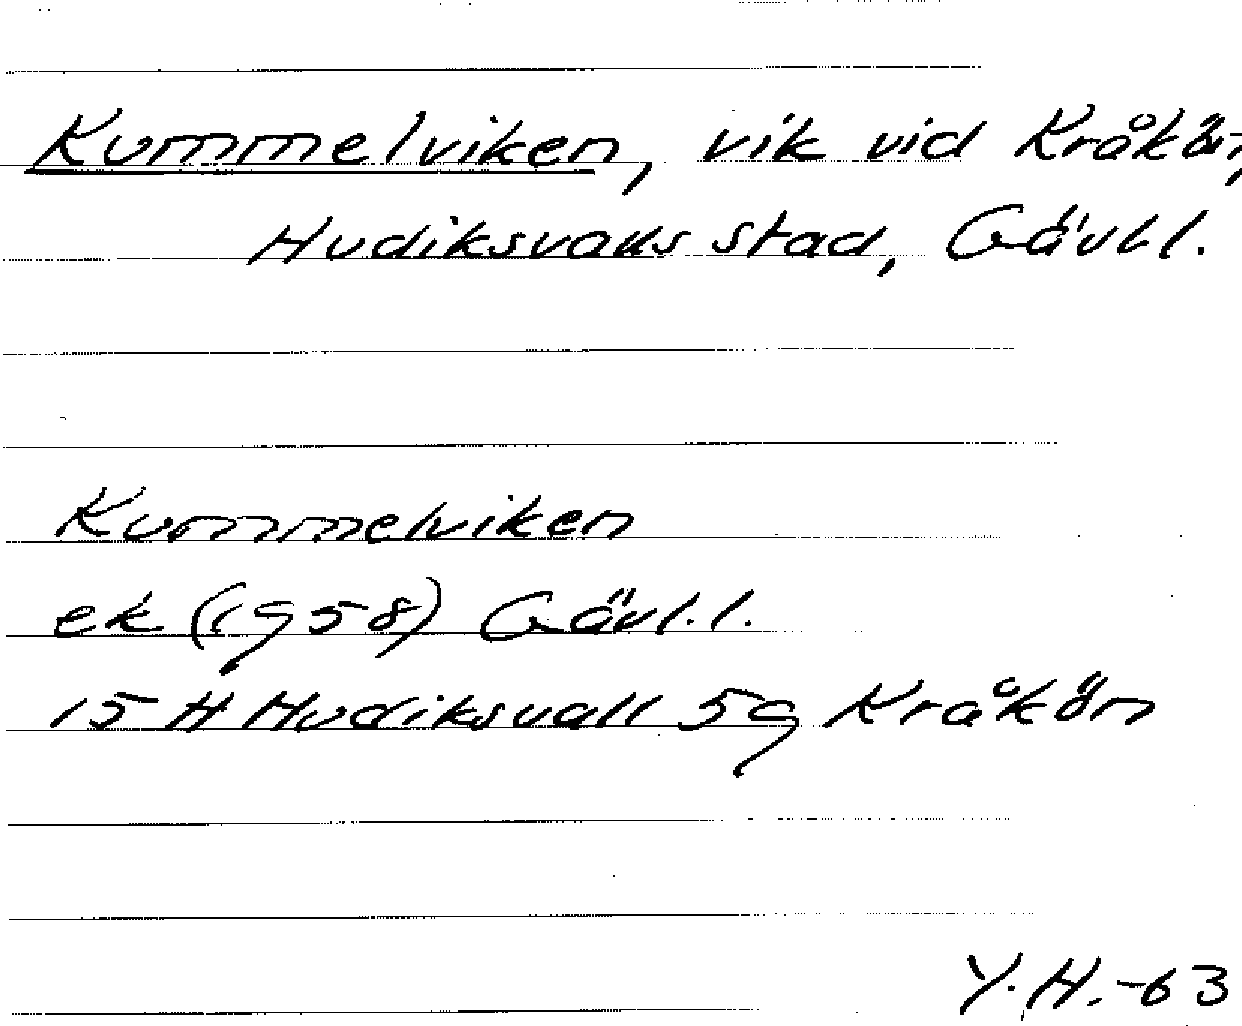 Kummelviken, vik vid Kråkön,
Hudiksvalls stad, Gävl.l.
Kummelviken
ek (1958) Gävl.l.
15 H Hudiksvall 5g Kråkön
Y.H.-63